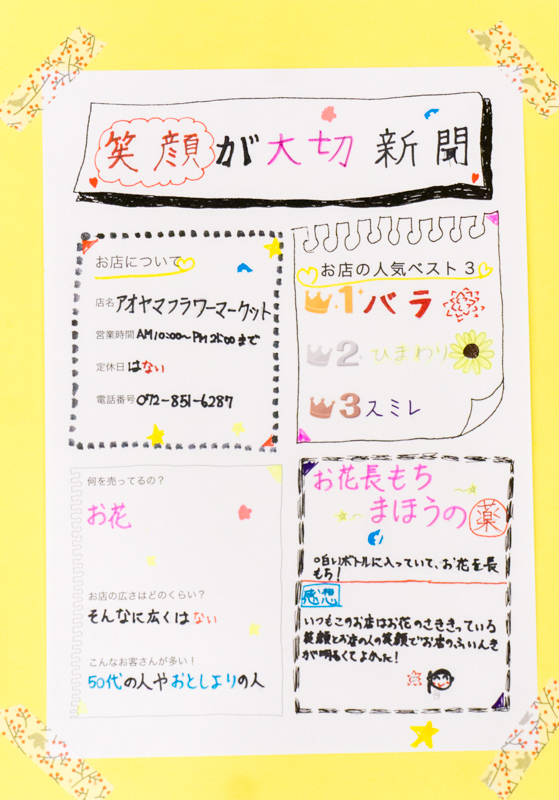 笑顔が大切新聞
お店について
店名 アオヤマフラワーマーケット
営業時間 AM10:00〜PM21:00まで
定休日 はない
電話番号 072-851-6287
お店の人気ベスト3
1 バラ
2 ひまわり
3 スミレ
何を売ってるの？
お花
お店の広さはどのくらい？
そんなに広くはない
こんなお客さんが多い！
50代の人やおとしよりの人
お花長もち
まほうの薬
○白いボトルに入っていて、お花を長
もち！
感想
いつもこのお店はお花のさききっている
笑顔とお店の人の笑顔でお店のふいんき
が明るくてよかった！